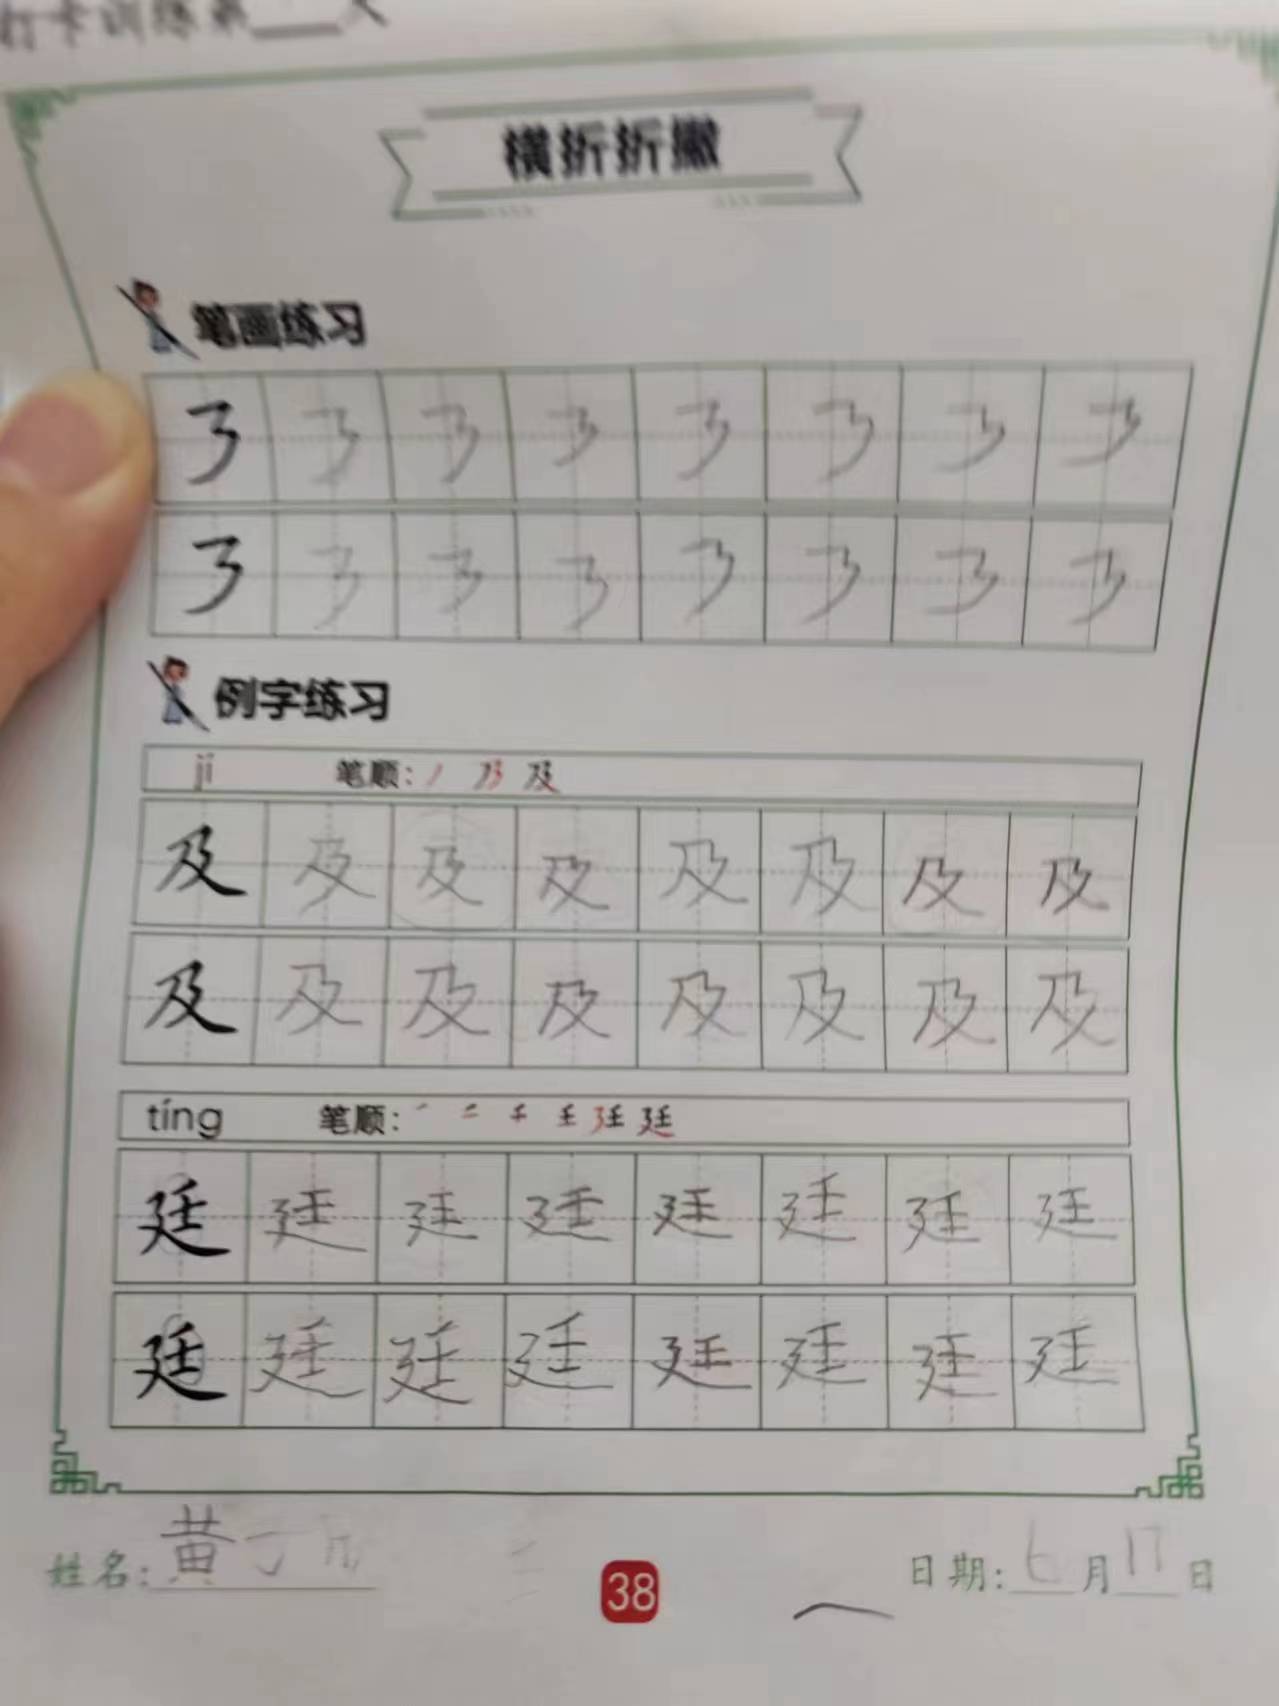 打卡训练第___天
横折折撇
笔画练习
例字练习
jí 笔顺：丿 乃 及
及 及 及 及 及 及 及 及
及 及 及 及 及 及 及 及
tíng 笔顺：
廷 廷 廷 廷 廷 廷 廷 廷
廷 廷 廷 廷 廷 廷 廷 廷
姓名：黄
38
日期：七月17日